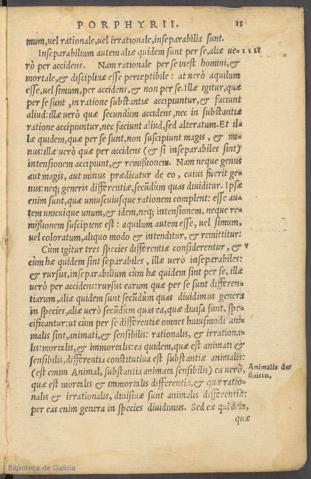 PORPHYRII. 15
mum, vel rationale, vel irrationale, inseparabilia sunt.
Inseparabilium autem aliæ quidem sunt per se, aliæ ve-
rò per accidens. Nam rationale per se inest homini, &
mortale, & disciplinæ esse perceptibile: at verò aquilum
esse, vel simum, per accidens, & non per se. Illæ igitur, quæ
per se sunt, in ratione substantiæ accipiuntur, & faciunt
aliud: illæ verò quæ secundum accidens, nec in substantiæ
ratione accipiuntur, nec faciunt aliud, sed alteratum. Et il-
læ quidem, quæ per se sunt, non suscipiunt magis, & mi-
nus: illæ verò quæ per accidens (& si inseparabiles sint)
intensionem accipiunt, & remissionem. Nam neque genus
aut magis, aut minus prædicatur de eo, cuius fuerit ge-
nus: neq; generis differentiæ, secūdùm quas diuiditur. Ipsæ
enim sunt, quæ uniuscuiusque rationem complent: esse au-
tem unicuique unum, & idem, neq; intensionem, neque re-
missionem suscipiens est: aquilum autem esse, vel simum,
vel coloratum, aliquo modo & intenditur, & remittitur.
Cùm igitur tres species differentiæ considerentur, &
cùm hæ quidem sint separabiles, illæ verò inseparabiles:
& rursus, inseparabilium cùm hæ quidem sint per se, illæ
verò per accidens: rursus earum quæ per se sunt differen-
tiarum, aliæ quidem sunt secūdùm quas diuidimus genera
in species, aliæ verò secūdùm quas ea, quæ diuisa sunt, spe-
cificantur: ut cùm per se differentiæ omnes huiusmodi ani-
malis sint, animati, & sensibilis: rationalis, & irrationa-
lis: mortalis, & immortalis: ea quidem, quæ est animati &
sensibilis, differentia constitutiua est substantiæ animalis:
(est enim Animal, substantia animata sensibilis) ea verò,
Animalis de-
finitio.
quæ est mortalis & immortalis differentia, & quæ ratio-
nalis & irrationalis, diuisiuæ sunt animalis differentiæ:
per eas enim genera in species diuidimus. Sed eæ quidem,
quæ
Biblioteca de Galicia